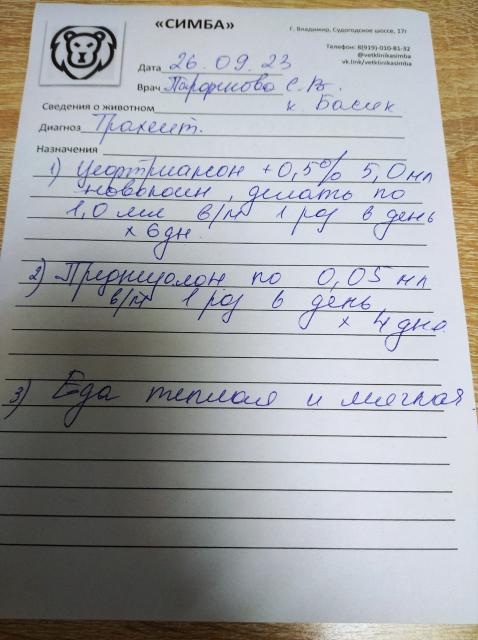 «СИМБА»
Г. Владимир, Судогодское шоссе, 17г
Телефон: 8(919)-010-81-32
@vetklinikasimba
vk.link/vetklinikasimba
Дата 26.09.23
Врач С.В.
Сведения о животном к. Басик
Диагноз Трахеит.
Назначения
1) Цефтриаксон + 0,5% 5,0 мл
новокаин, делать по
1,0 мл в/м 1 раз в день
х 6 дн.
2) Преднизолон по 0,05 мл
в/м 1 раз в день
х 4 дня.
3) Еда теплая и мягкая.